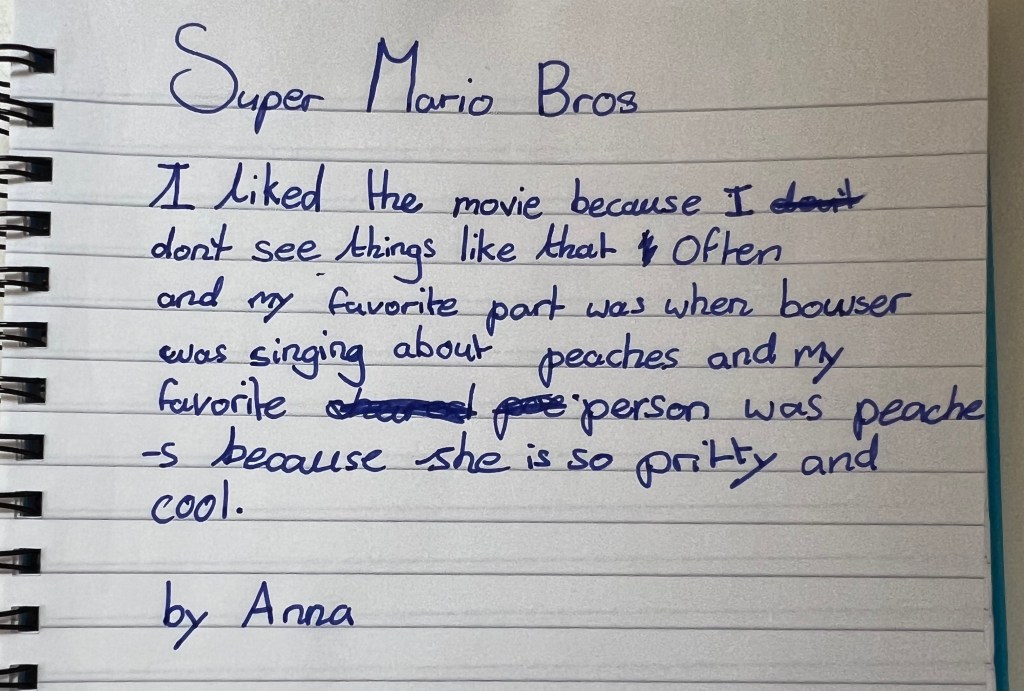 Super Mario Bros
I liked the movie because I
dont see things like that Often
and my favorite part was when bowser
was singing about peaches and my
favorite person was peache
-s because she is so pritty and
cool.
by Anna